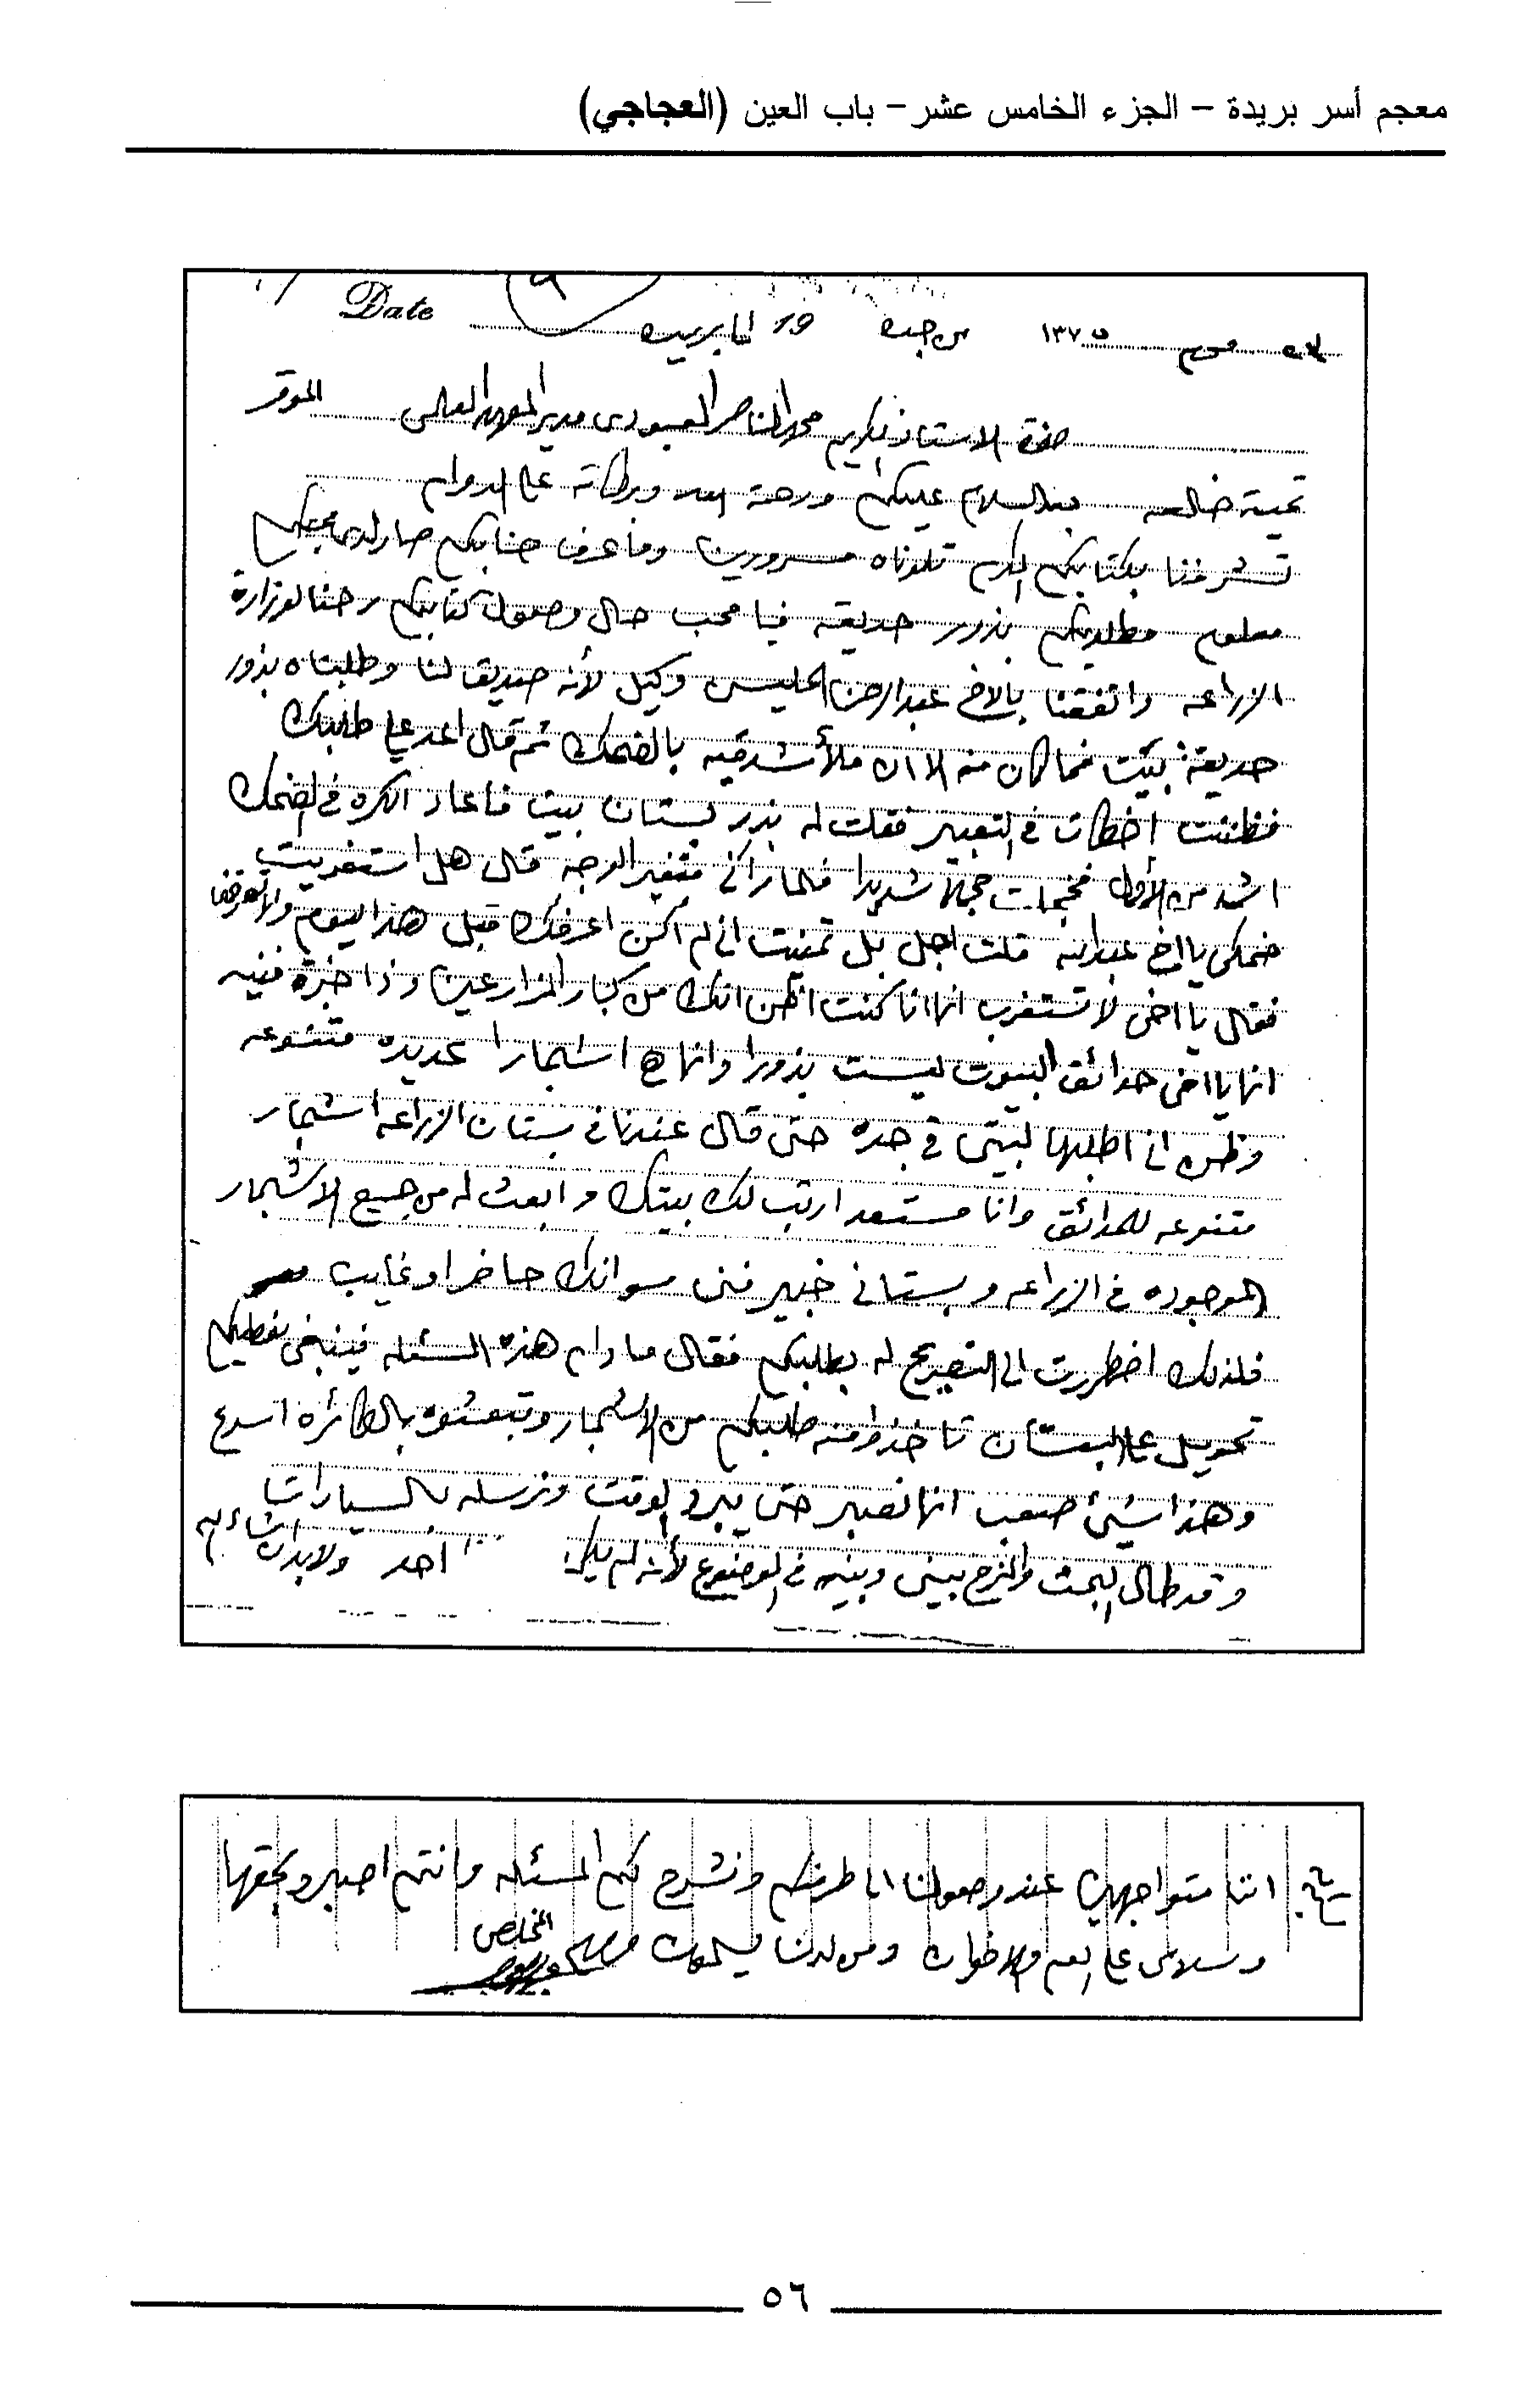 معجم أسر بريدة – الجزء الخامس عشر – باب العين (العجاجي)
Date
محرم ١٣٧٥ من جده 19 الى بريده
حضرة الاستاذ الكريم محمد الناصر العبودي مدير المعهد العلمي الموقر
تحية خالصه بعد السلام عليكم ورحمة الله وبركاته على الدوام
تشرفنا بكتابكم الكريم تلوناه مسرورين وما عرف جنابكم صار لدى محبكم
معلوم مطلوبكم بذور حديقه فيا محب حال وصول كتابكم رحنا لوزارة
الزراعه واتفقنا بالاخ عبدالرحمن الحليسي وكيل لأنه صديق لنا وطلبناه بذور
حديقة بيت فما كان منه الا ان ملأ شدقيه بالضحك ثم قال اعد علي طلبك
فظننت أخطات في التعبير فقلت له بذر بستان بيت فاعاد الكره في الضحك
اشد من الأولى فخجلت خجلا شديدا فلما رآني متغير الوجه قال هل استغربت
ضحكي يا اخ عبدالله قلت اجل بل تمنيت اني لم أكن اعرفك قبل هذا اليوم ولا تعرفني
فقال يا اخي لا تستغرب انما انا كنت اظن انك من كبار المزارعين وذا خبرة فنيه
انما يا اخي حدائق البيوت ليست بذورا وانما هي اشجارا عديده متنوعه
وظن اني اطلبها لبيتي في جده حتى قال عندنا في بستان الزراعه اشجار
متنوعه للحدائق وانا مستعد ارتب لك بيتك وابعث له من جميع الاشجار
الموجوده في الزراعه وبستاني خبير فني سوا انك حاضر او غايب
فلذلك اضطررت الى التصريح له بطلبكم فقال ما دام هذه المسئله فينبغي نعطيكم
تحويل على البستان تاخذوا منه طلبكم من الاشجار وتبعثوه بالطائره اسرع
وهذا شيئ صعب انما نصبر حتى يبرد الوقت ونرسله بالسيارات
وقد طال البحث والمزح بيني وبينه في الموضوع لأنه لم يكن أحد ولابد ان شاء الله
اننا متواجهين عند وصولنا الى طرفكم ونشرح لكم المسئله وانتم اصبروا بحقها
وسلامي على العم والاخوان ومن لدينا يسلمون
المخلص
٥٦